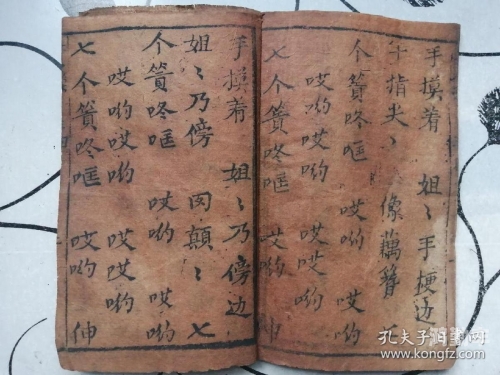 手摸着　姐〻手梗边
十指尖〻　像藕簪　七
个簧咚哐　哎哟　哎哟
哎哟哎哟　哎哎哟
七个簧咚哐　哎哟　伸
手摸着　姐〻乃傍边
姐〻乃傍　肉顛〻　七
个簧咚哐　哎哟　哎哟
哎哟哎哟　哎哎哟
七个簧咚哐　哎哟　伸
孔夫子旧书网
www.kongfz.com